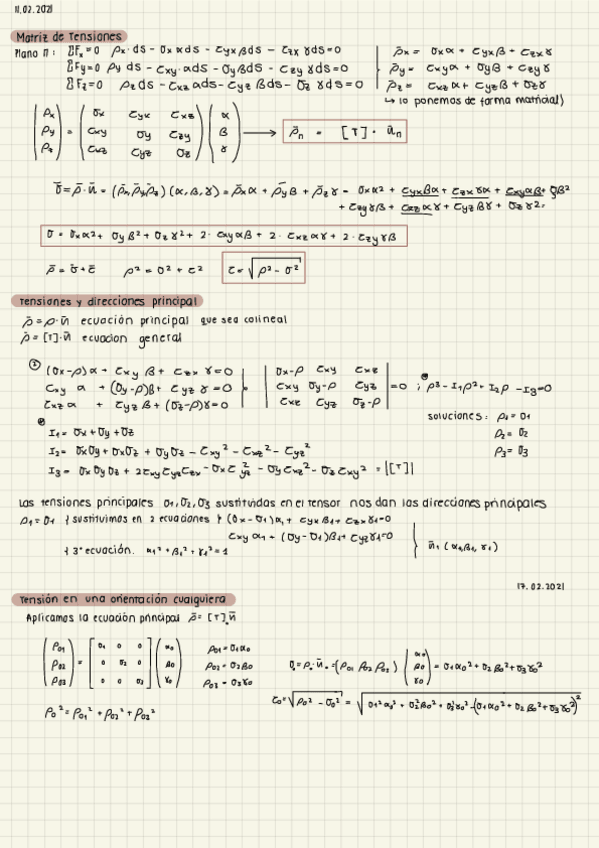 11.02.2021
Matriz de Tensiones
Plano π: ΣFx=0 ρx·ds - σxαds - τyxβds - τzxγds=0 ρ̄x = σxα + τyxβ + τzxγ
ΣFy=0 ρyds - τxy·αds - σyβds - τzyγds=0 ρ̄y = τxyα + σyβ + τzyγ
ΣFz=0 ρzds - τxzαds - τyzβds - σzγds=0 ρ̄z = τxzα + τyzβ + σzγ
↳ lo ponemos de forma matricial)
(ρx ρy ρz) = (σx τyx τxz; τxy σy τzy; τxz τyz σz)(α β γ) → ρ̄n = [T]·ūn
σ̄ = ρ̄·n̄ = (ρ̄x, ρ̄y, ρ̄z)(α, β, γ) = ρ̄xα + ρ̄yβ + ρ̄zγ = σxα² + τyxβα + τzxγα + τxyαβ + σyβ²
+ τzyγβ + τxzαγ + τyzβγ + σzγ²,
σ = σxα² + σyβ² + σzγ² + 2·τxyαβ + 2·τxzαγ + 2·τzyγβ
ρ̄ = σ̄ + τ̄ ρ² = σ² + τ² τ = √(ρ² - σ²)
Tensiones y direcciones principal
ρ̄ = ρ·n̄ ecuación principal que sea colineal
ρ̄ = [T]·n̄ ecuacion general
(σx-ρ)α + τxyβ + τzxγ = 0 |σx-ρ τxy τxz|
τxyα + (σy-ρ)β + τyzγ = 0 |τxy σy-ρ τyz| = 0 ; ρ³ - I1ρ² + I2ρ - I3 = 0
τxzα + τyzβ + (σz-ρ)γ = 0 |τxz τyz σz-ρ|
soluciones: ρ1 = σ1
ρ2 = σ2
ρ3 = σ3
I1 = σx + σy + σz
I2 = σxσy + σxσz + σyσz - τxy² - τxz² - τyz²
I3 = σxσyσz + 2τxyτyzτzx - σxτyz² - σyτxz² - σzτxy² = |[T]|
Las tensiones principales σ1, σ2, σ3 sustituidas en el tensor nos dan las direcciones principales
ρ1 = σ1 { sustituimos en 2 ecuaciones } (σx - σ1)α1 + τyxβ1 + τzxγ1=0
τxyα1 + (σy - σ1)β1 + τyzγ1=0
{ 3ª ecuación. α1² + β1² + γ1² = 1 n̄1 (α1, β1, γ1)
17.02.2021
Tensión en una orientación cualquiera
Aplicamos la ecuación principal ρ̄ = [T]·n̄
(ρ01 ρ02 ρ03) = [σ1 0 0; 0 σ2 0; 0 0 σ3](α0 β0 γ0)
ρ01 = σ1α0
ρ02 = σ2β0
ρ03 = σ3γ0
σ0 = ρ̄·n̄ = (ρ01 ρ02 ρ03)(α0 β0 γ0) = σ1α0² + σ2β0² + σ3γ0²
ρ0² = ρ01² + ρ02² + ρ03²
τ0 = √(ρ0² - σ0²) = √(σ1²α0² + σ2²β0² + σ3²γ0² - (σ1α0² + σ2β0² + σ3γ0²)²)